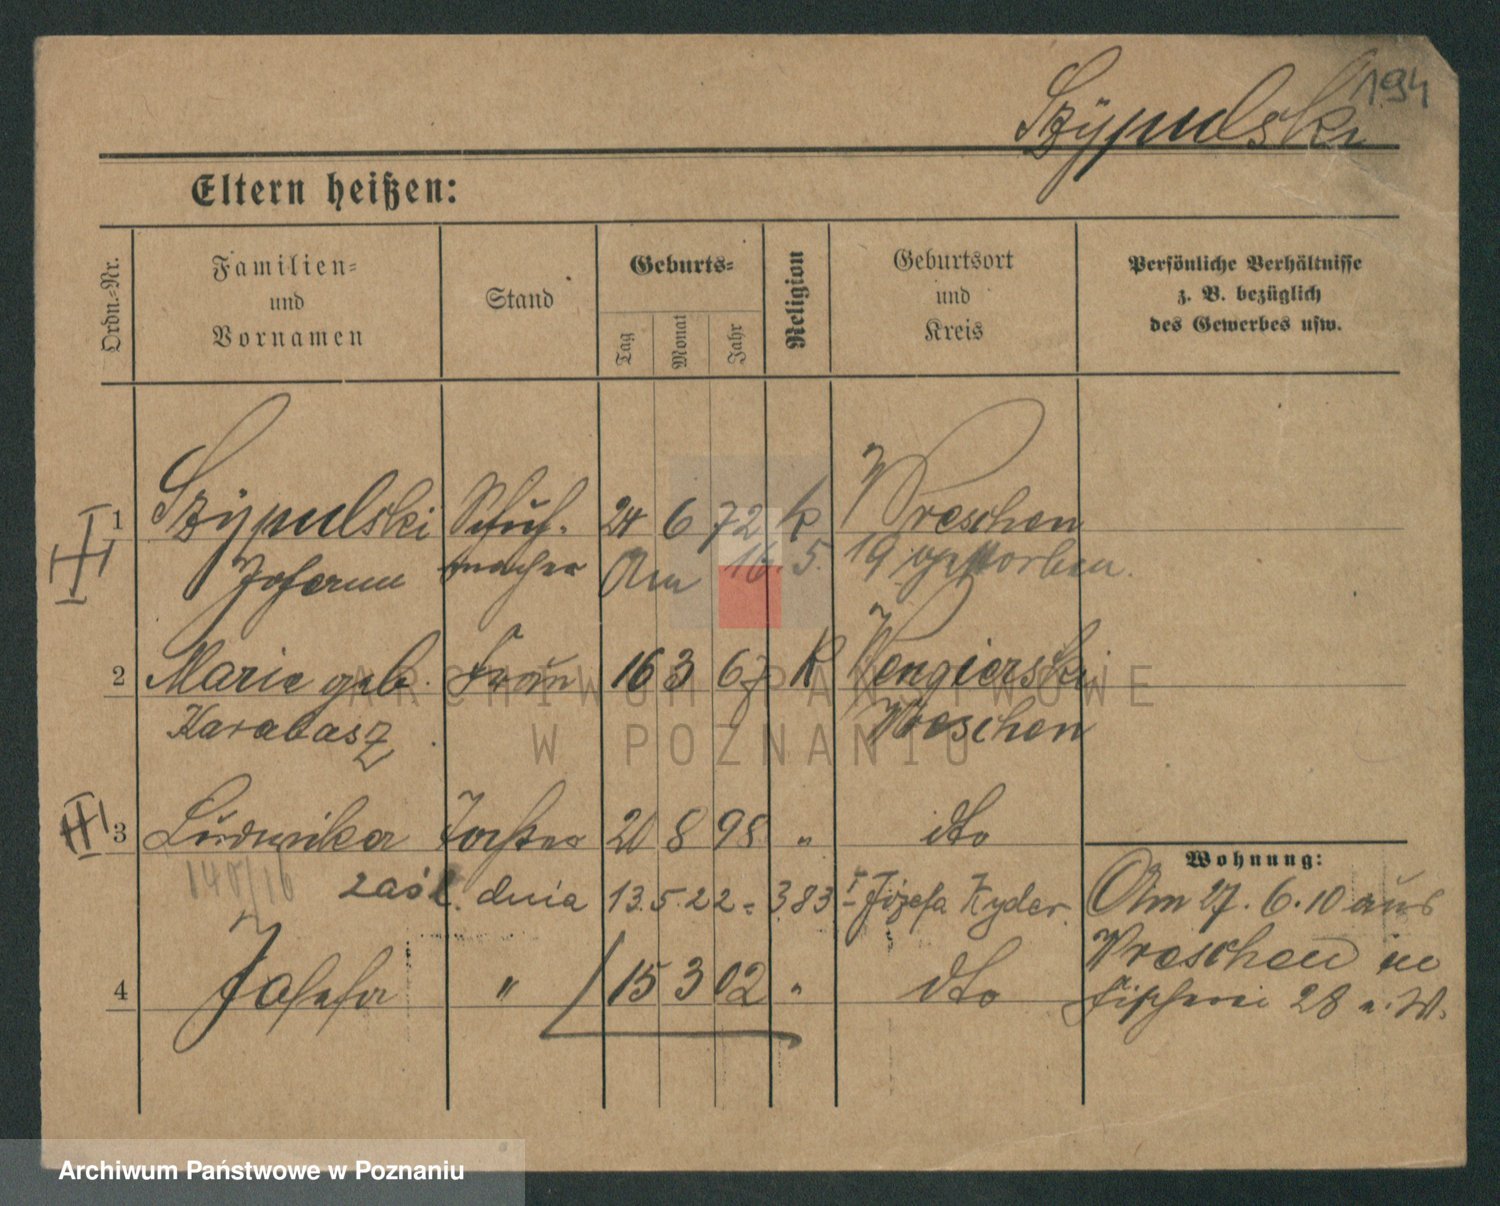 194
Szÿpulski
Eltern heißen:
Ordn.-Nr.
Familien-
und
Vornamen
Stand
Geburts-
Tag
Monat
Jahr
Religion
Geburtsort
und
Kreis
Persönliche Verhältnisse
z. B. bezüglich
des Gewerbes usw.
1 Szÿpulski Schuh- 24 6 72 k Wreschen
Johann macher Am 16 5. 19 gestorben.
2 Marie geb. Frau 16 3 67 K Wengierski
Karabasz Wreschen
3 Ludwika Tochter 20 8 98 " dto
140/16
zaśl. dnia 13.5.22 = 383 I Józefa Kyder.
4 Josefa " 15 3 02 " dto
Wohnung:
Am 27. 6. 10 aus
Wreschen in
Fischerei 28 u. W.
ARCHIWUM PAŃSTWOWE
W POZNANIU
Archiwum Państwowe w Poznaniu